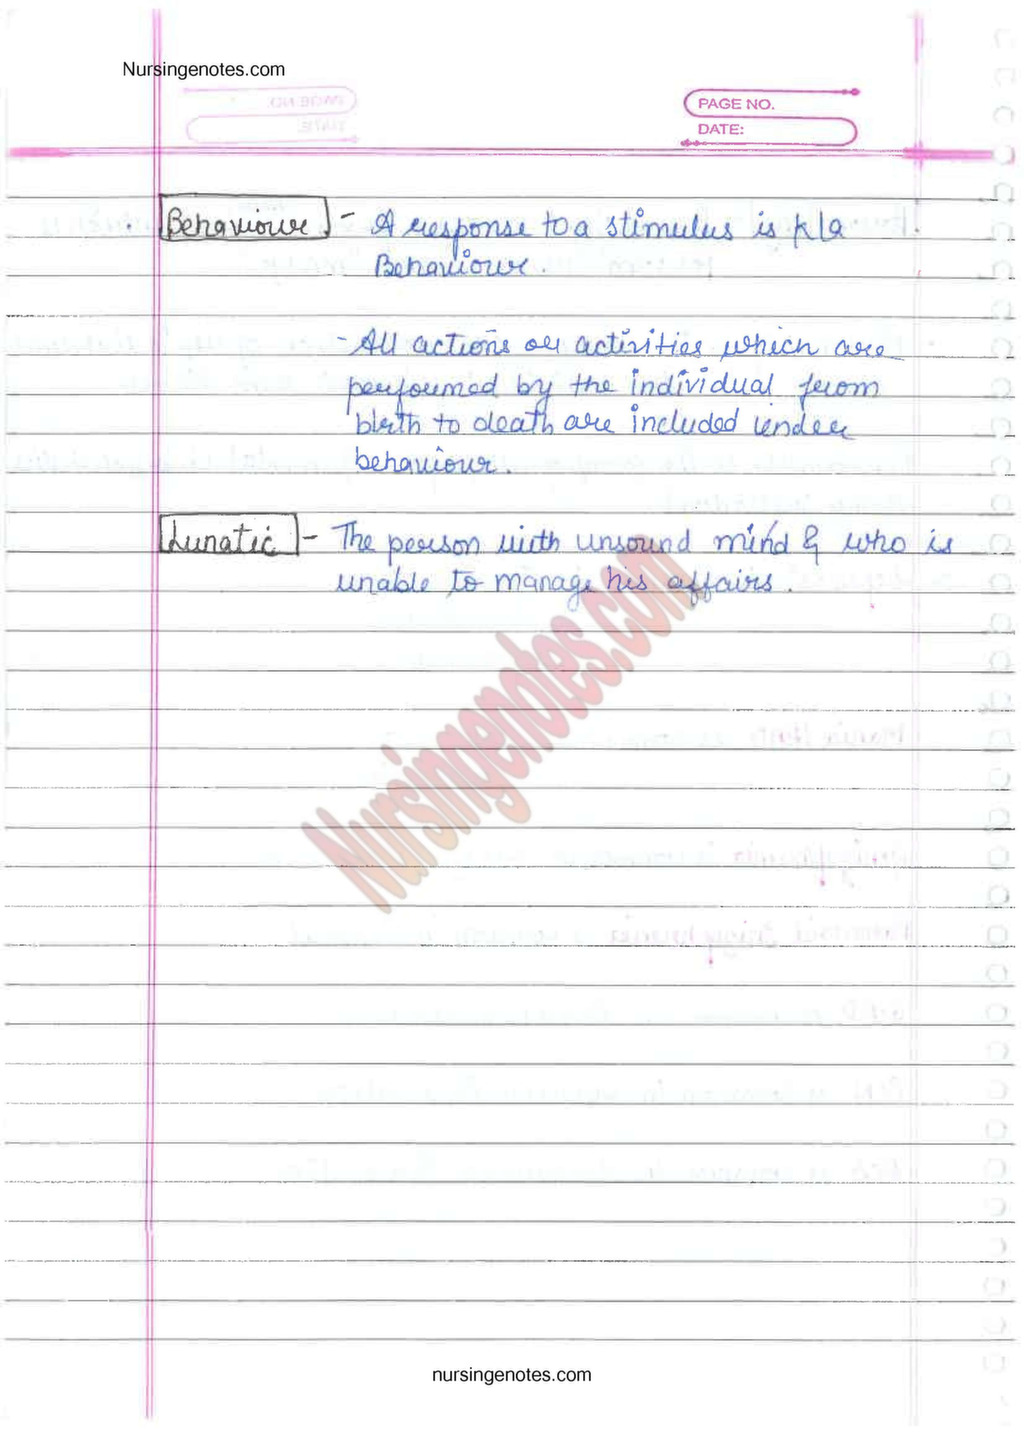 Nursingenotes.com
PAGE NO.
DATE:
Behaviour - A response to a stimulus is k/a
Behaviour.
- All actions or activities which are
performed by the individual from
birth to death are included under
behaviour.
Lunatic - The person with unsound mind & who is
unable to manage his affairs.
Nursingenotes.com
nursingenotes.com